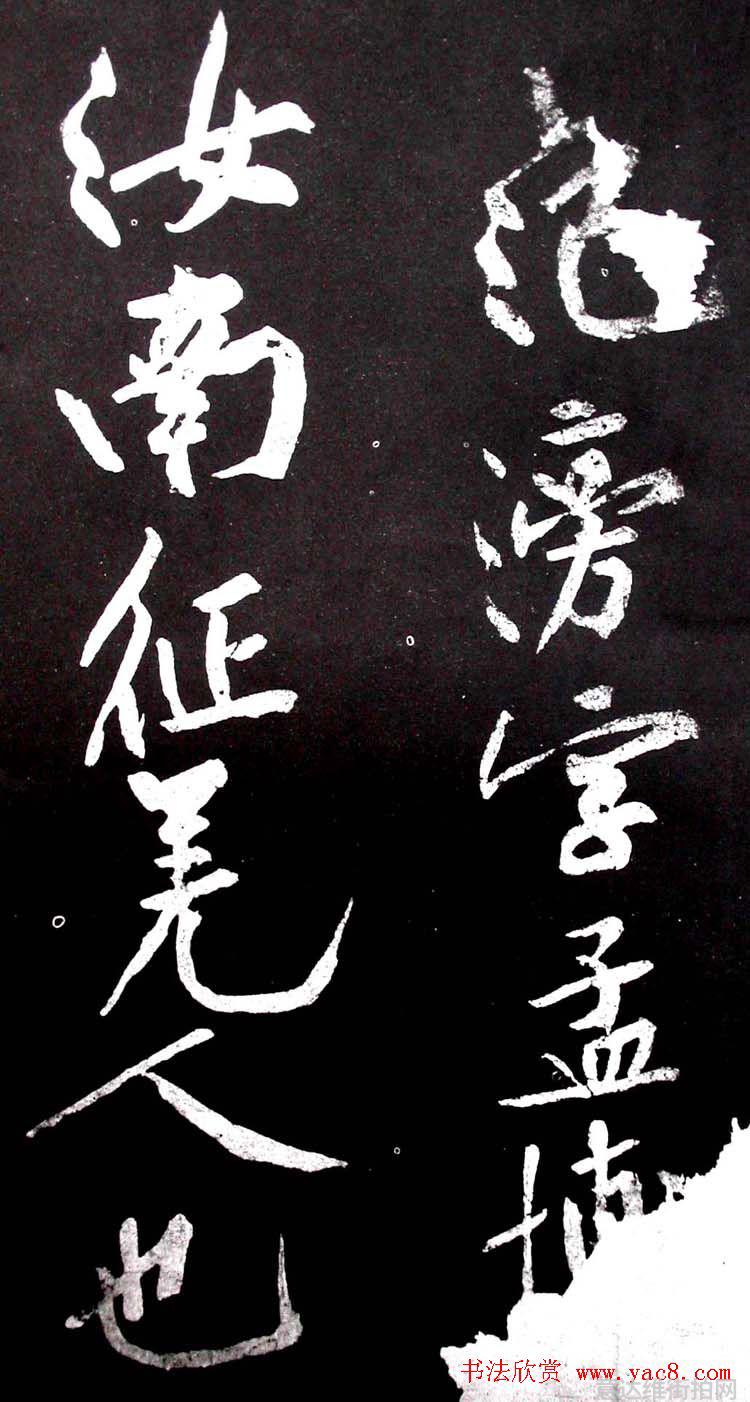 范滂字孟博
汝南征羌人也
书法欣赏 www.yac8.com
意达维街拍网